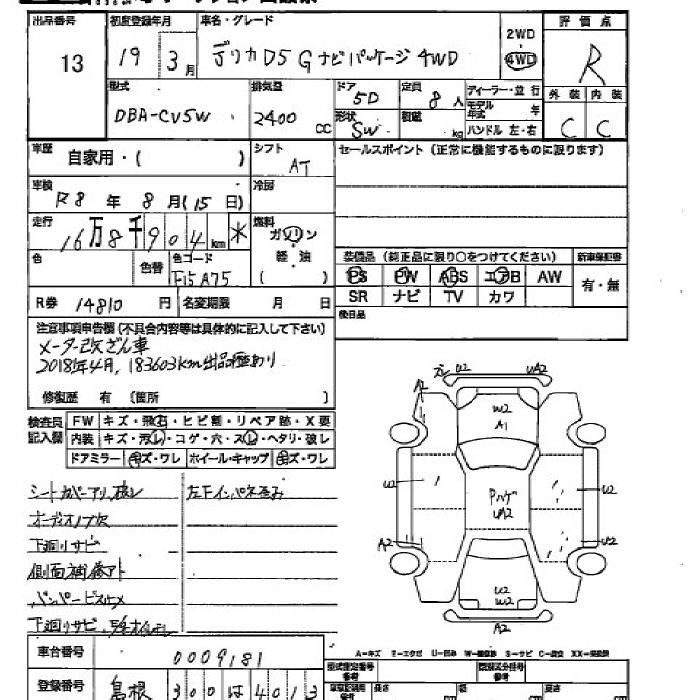 出品番号 初度登録年月 車名・グレード 2WD 評価点
13 19 3月 デリカD5 G ナビパッケージ 4WD 4WD R
型式 排気量 ドア 定員 ディーラー・並行 外装 内装
DBA-CV5W 2400 CC 5D 8人 モデル年式 年 C C
形状 SW 積載 kg ハンドル 左・右
車歴 自家用・( ) シフト AT セールスポイント (正常に機能するものに限ります)
車検 R8 年 8 月 (15 日) 冷房
走行 16万8千904km * 燃料 ガソリン
軽油
( )
色 色替 色コード F15A75
装備品 (純正品に限り○をつけてください) 新車保証書
PS PW ABS エアB AW 有・無
SR ナビ TV カワ
R券 14810 円 名変期限 月 日
後日品
注意事項申告欄 (不具合内容等は具体的に記入して下さい)
メーター改ざん車
2018年4月, 183603km出品歴あり
修復歴 有 (箇所 )
検査員記入欄 FW キズ・飛石・ヒビ割・リペア跡・X要
内装 キズ・汚れ・コゲ・穴・スレ・ヘタリ・破レ
ドアミラー キズ・ワレ ホイール・キャップ キズ・ワレ
左下インパネ歪み
オーディオノブ欠
下廻りサビ
側面補修アト
U2 UA2
A2
W2
A1
U2 U2
UA2
A2 U2
U2
W2
A2
A-キズ U-凹み S-サビ C-腐食
車台番号 0009181
登録番号 島根 300 は 4013
型式指定番号 類別区分番号
長さ 幅 高さ